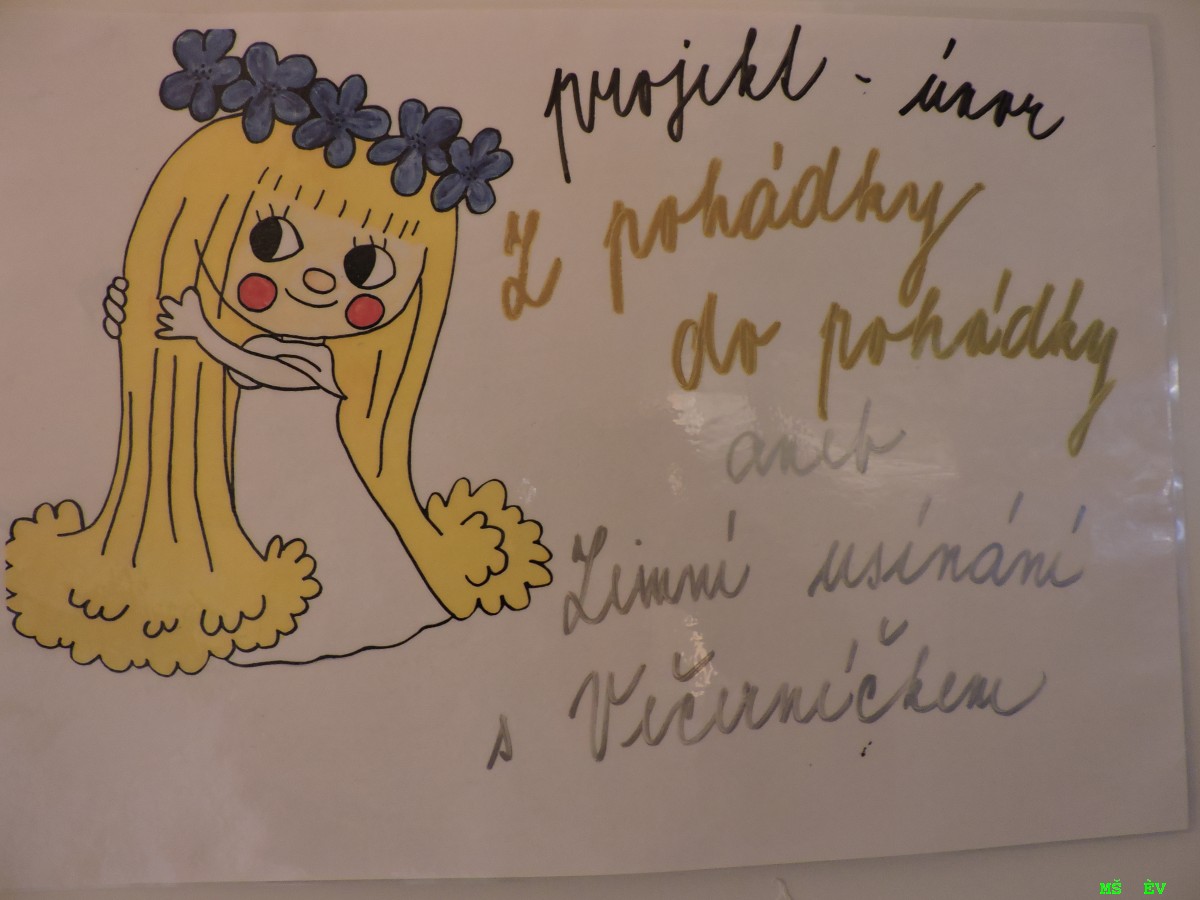 projekt - únor
Z pohádky
do pohádky
aneb
Zimní usínání
s Večerníčkem
MŠ ÈV